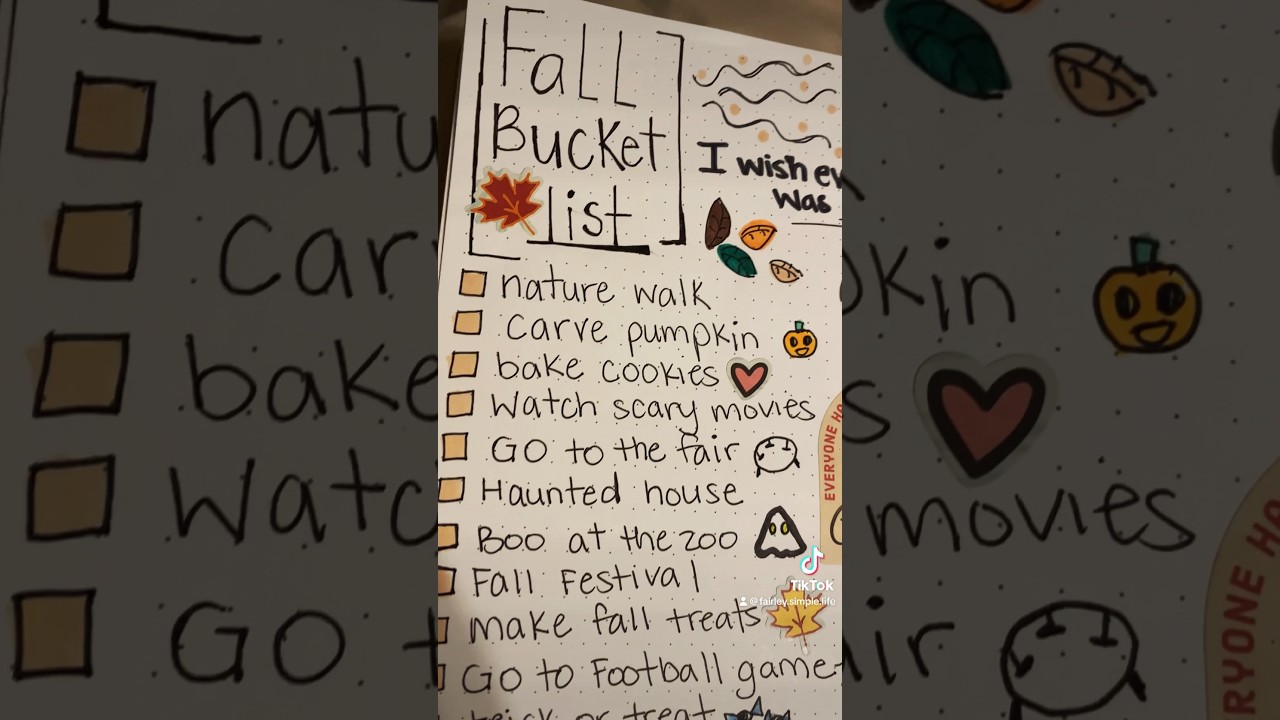 Fall
Bucket
list
I wish
was
nature walk
carve pumpkin
bake cookies
Watch scary movies
Go to the fair
Haunted house
Boo at the zoo
Fall Festival
make fall treats
Go to Football game
trick or treat
EVERYONE
TikTok
@fairley.simple.life